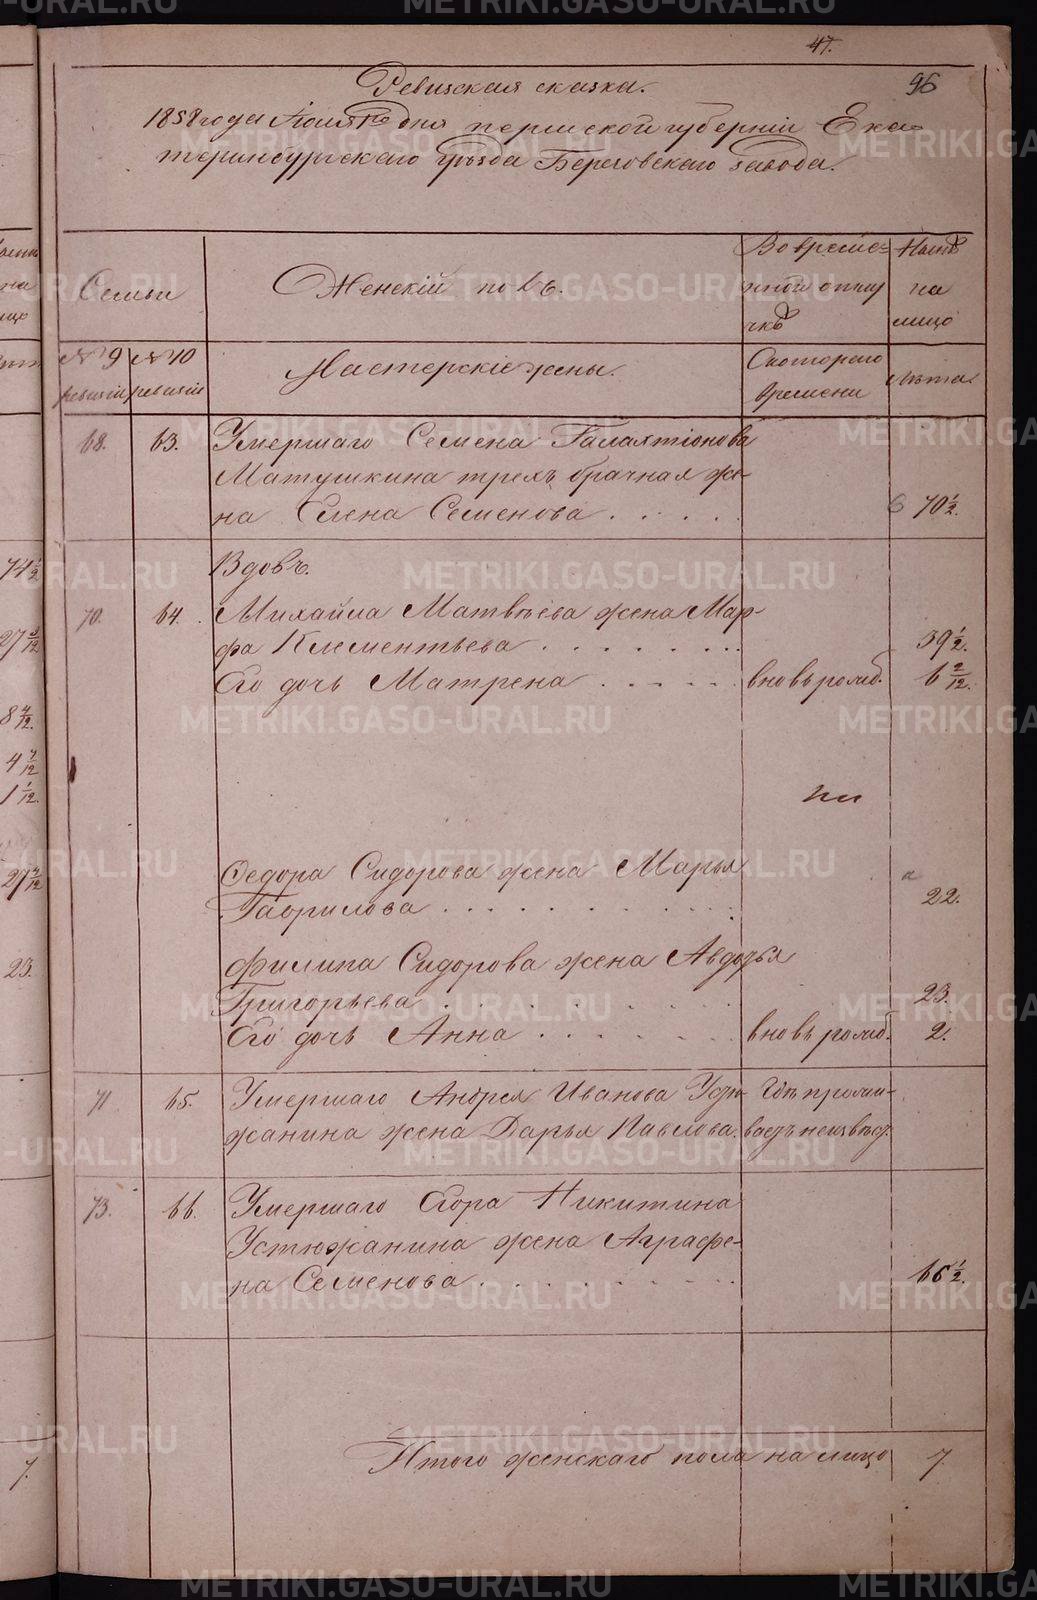 47.
96
Ревизская сказка.
1858 года Июня дня пермской губерніи Ека-
теринбургскаго уѣзда Березовскаго завода.
Семьи
Женскій полъ.
Во времен-
ной отлу-
чкѣ
Нынѣ
на
лицо
№ 9
ревизіи
№ 10
ревизіи
Мастерскіе жены.
Скотораго
времени
Лѣта
68. 63. Умершаго Семена Галахтіонова
Матушкина трехъ брачная же-
на Елена Семенова 70 1/2.
Вдовъ.
70. 64. Михайла Матвѣева жена Мар-
фа Клементьева 39 1/2.
Его дочь Матрена вновь рожд. 6 2/12.
Федора Сидорова жена Марья
Гаврилова 22.
Филипа Сидорова жена Авдотья
Григорьева 23.
Его дочь Анна вновь рожд. 2.
71 65. Умершаго Андрея Иванова Устю- Гдѣ прожи-
жанина жена Дарья Павлова. ваетъ неизвѣст.
73. 66. Умершаго Егора Никитина
Устюжанина жена Аграфе-
на Семенова 66 1/2.
Итого женскаго пола на лицо 7
74 1/2
8 4/12.
4 7/12
1 1/12.
23.
7.
METRIKI.GASO-URAL.RU